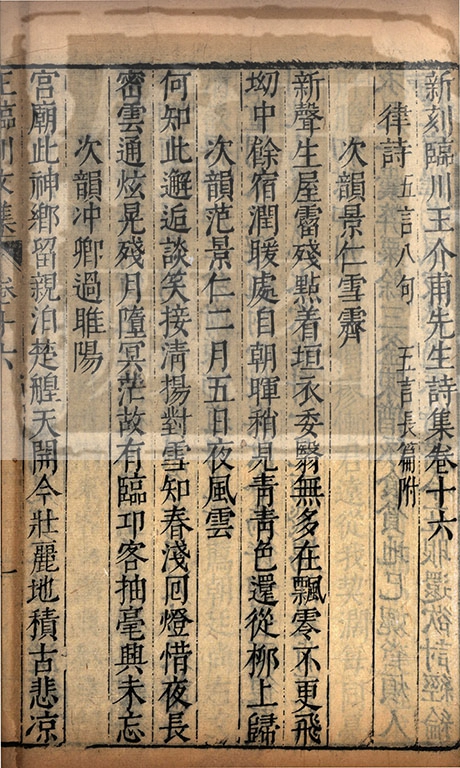 新刻臨川王介甫先生詩集卷十六
律詩 五言八句 五言長篇附
次韻景仁雪霽
新聲生屋霤殘㸃着垣衣委翳無多在飄零不更飛
坳中餘宿潤暖處自朝暉稍見青青色還從柳上歸
次韻范景仁二月五日夜風雲
何知此邂逅談笑接清揚對雪知春淺回燈惜夜長
密雲通炫晃殘月墮冥茫故有臨卭客抽毫興未忘
次韻冲卿過睢陽
宫廟此神鄉留親泊楚艎天開今壯麗地積古悲凉
王臨川文集 卷十六 一